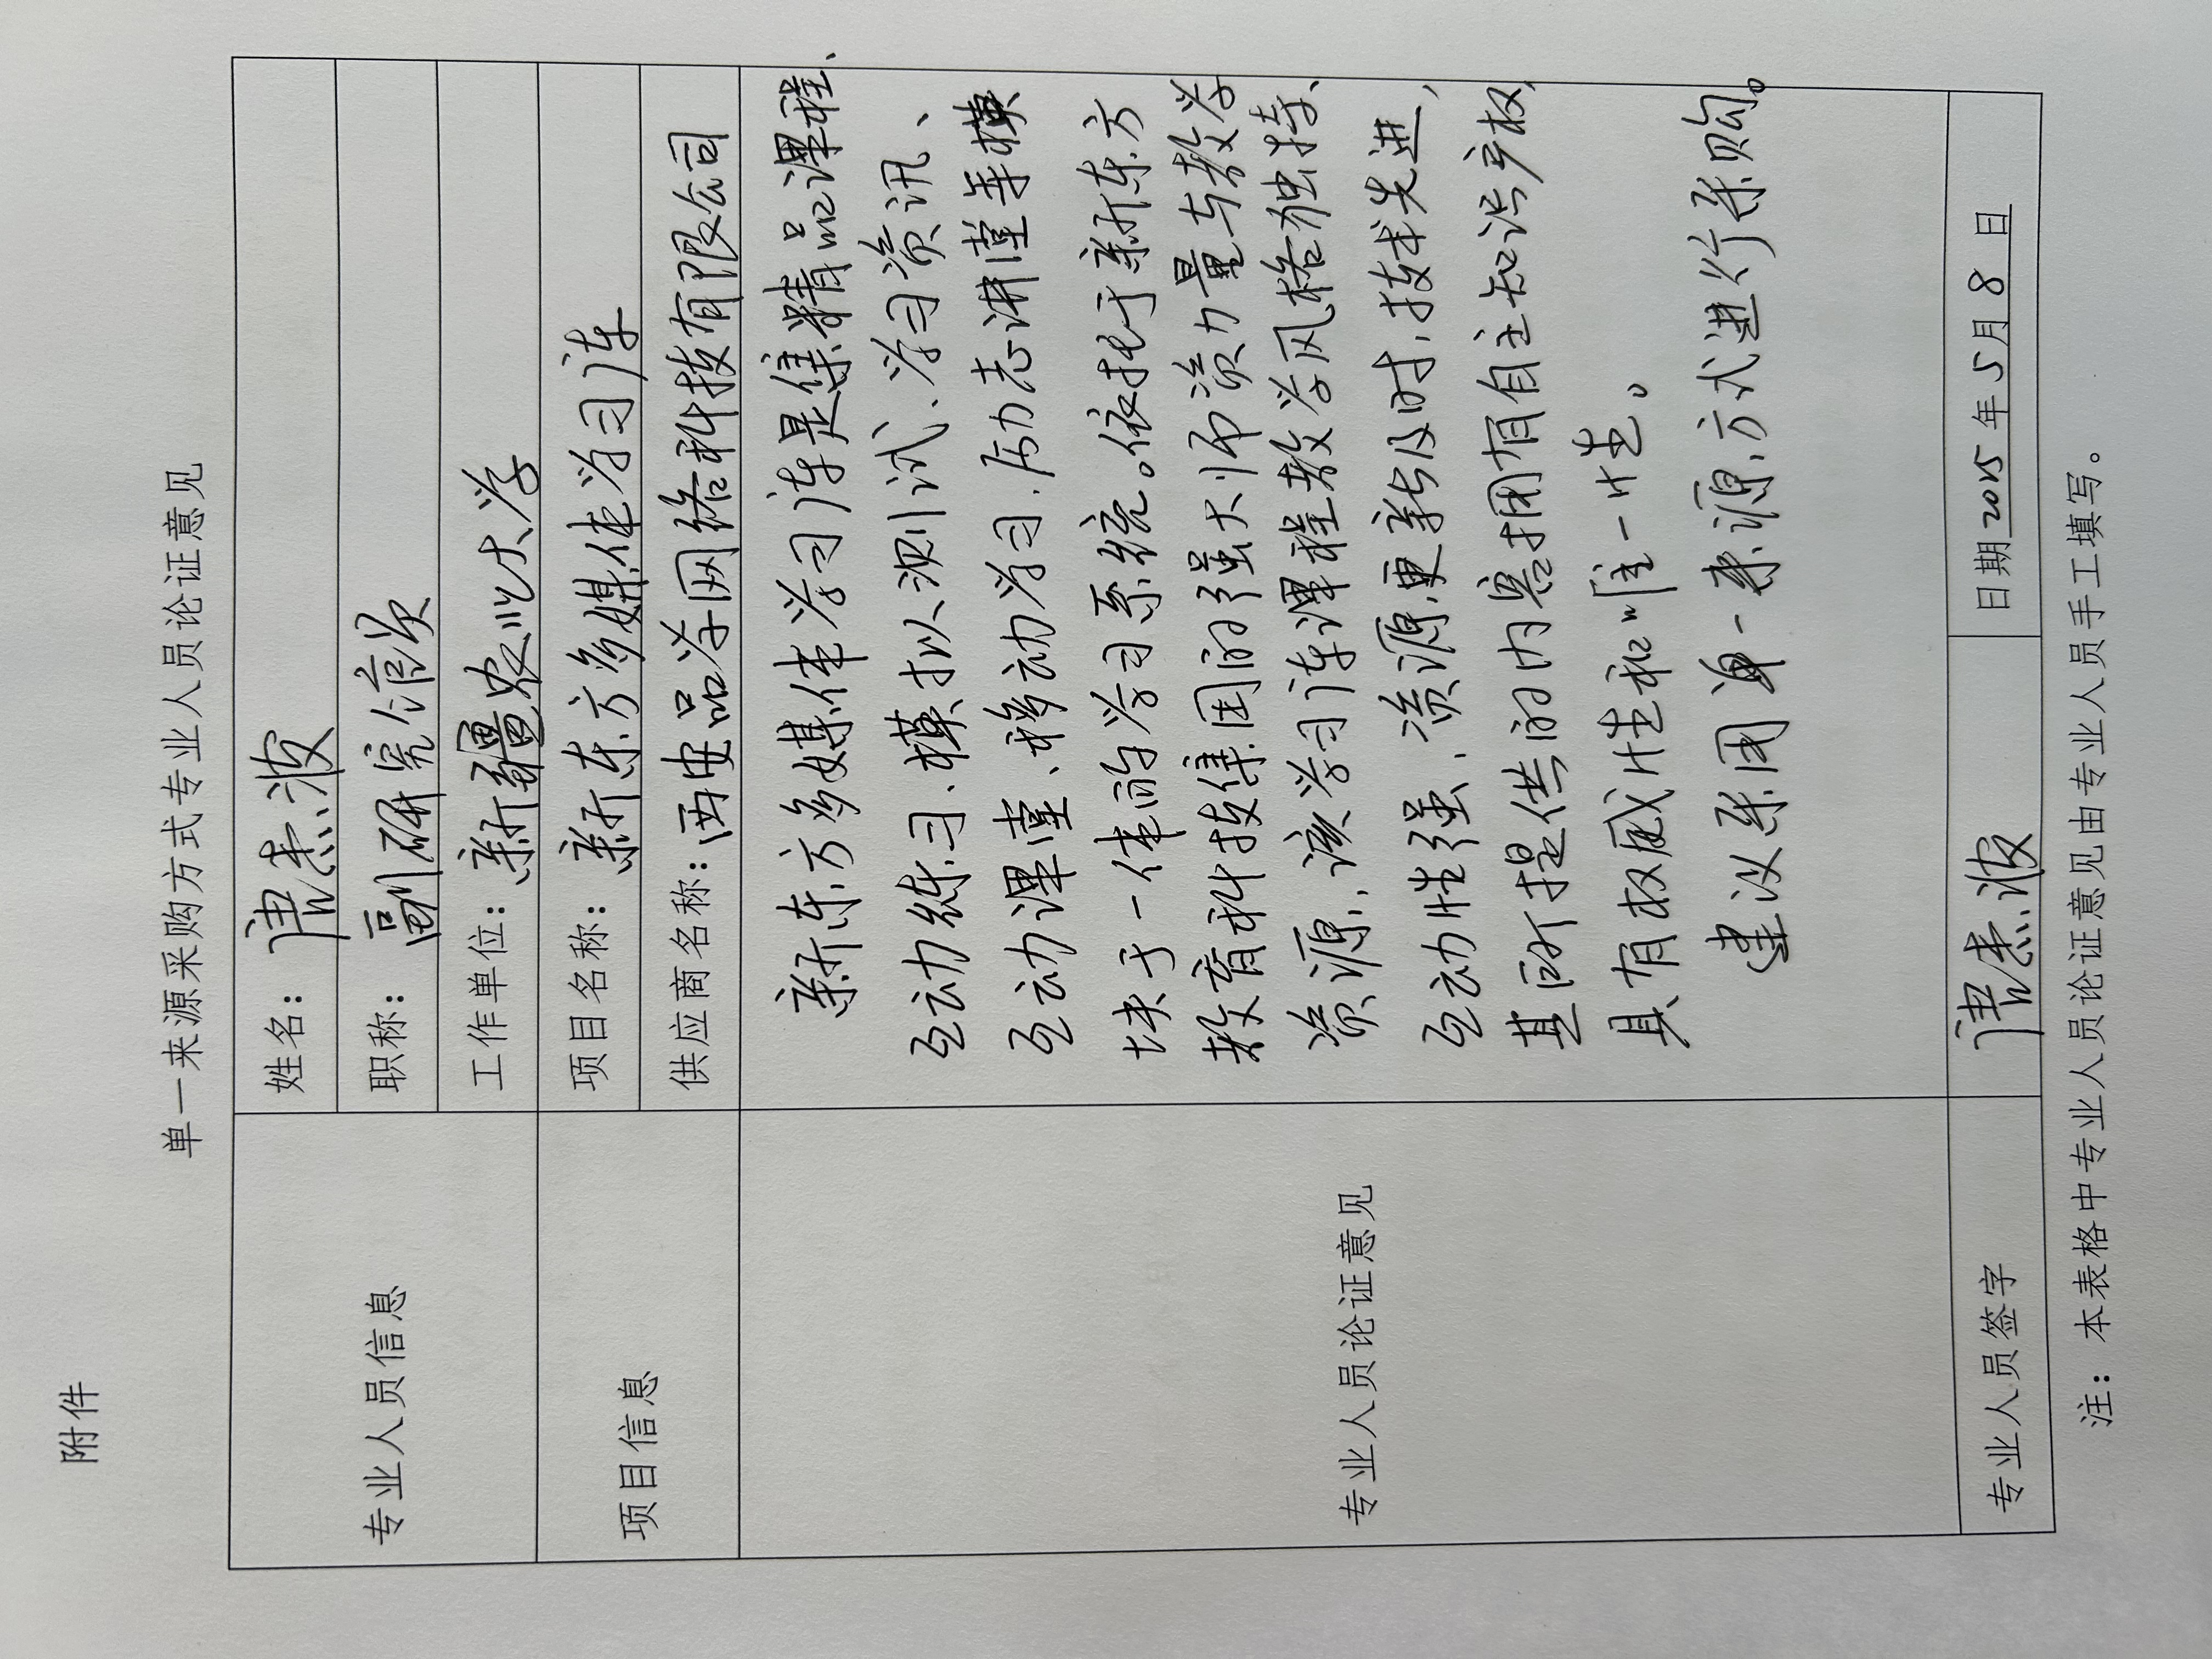 附件
单一来源采购方式专业人员论证意见
专业人员信息
姓名：唐焘波
职称：副研究馆员
工作单位：新疆农业大学
项目信息
项目名称：新东方多媒体学习库
供应商名称：西安品学网络科技有限公司
专业人员论证意见
新东方多媒体学习库是集精品课程、
互动练习、模拟测试、学习资讯、
互动课堂、移动学习、励志讲堂等模
块于一体的学习系统。依托于新东方
教育科技集团的强大师资力量与教学
资源，该学习库课程教学风格独特、
互动性强、资源更新及时，技术先进，
其所提供的内容拥有自主知识产权，
具有权威性和唯一性。
建议采用单一来源方式进行采购。
专业人员签字
唐焘波
日期 2015 年 5 月 8 日
注：本表格中专业人员论证意见由专业人员手工填写。